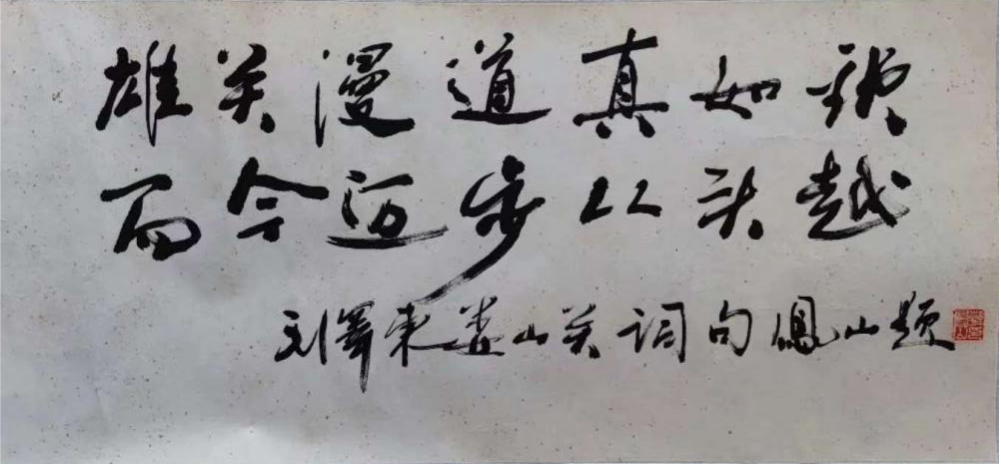 雄关漫道真如铁
而今迈步从头越
毛泽东娄山关词句凤山题